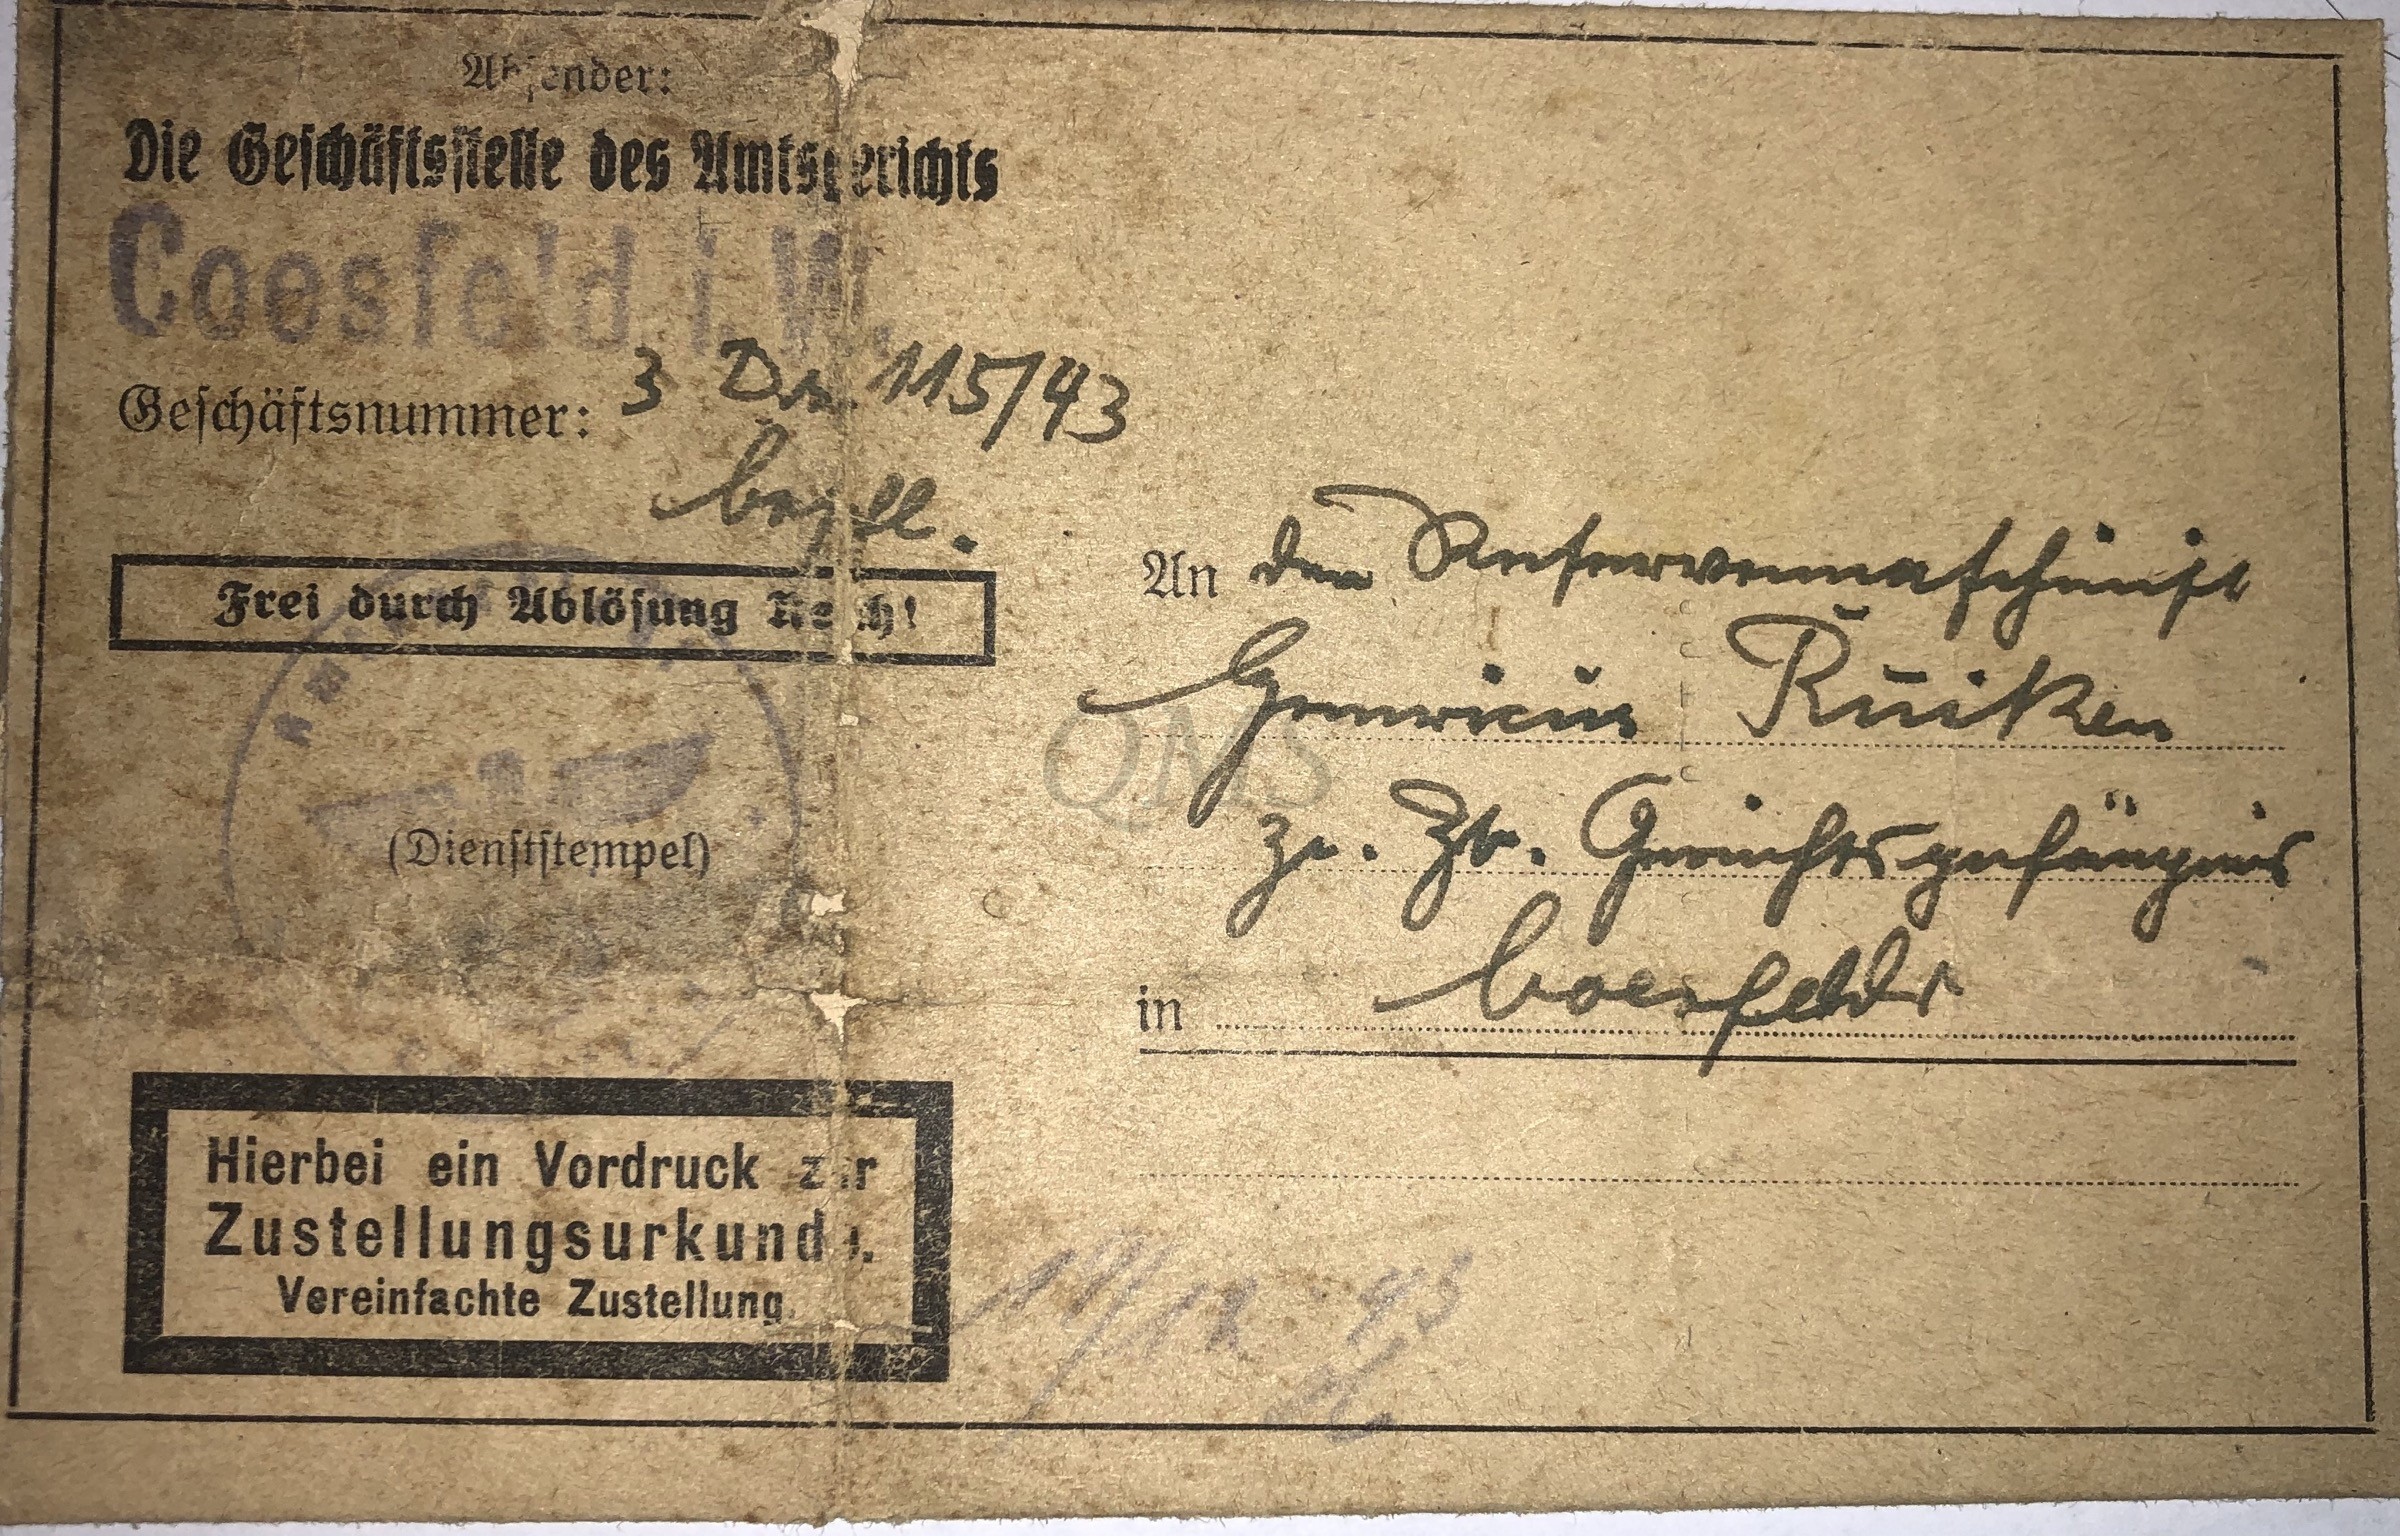 Absender:
Die Geschäftsstelle des Amtsgerichts
Coesfeld i. W.
Geschäftsnummer: 3 Ds 115/43
begl.
Frei durch Ablösung Reich!
(Dienststempel)
Hierbei ein Vordruck zur
Zustellungsurkunde.
Vereinfachte Zustellung.
An den Reservemaschinist
Heinrich Rüiken
zr. Zt. Gerichtsgefängnis
in Coesfeld
QMS
43